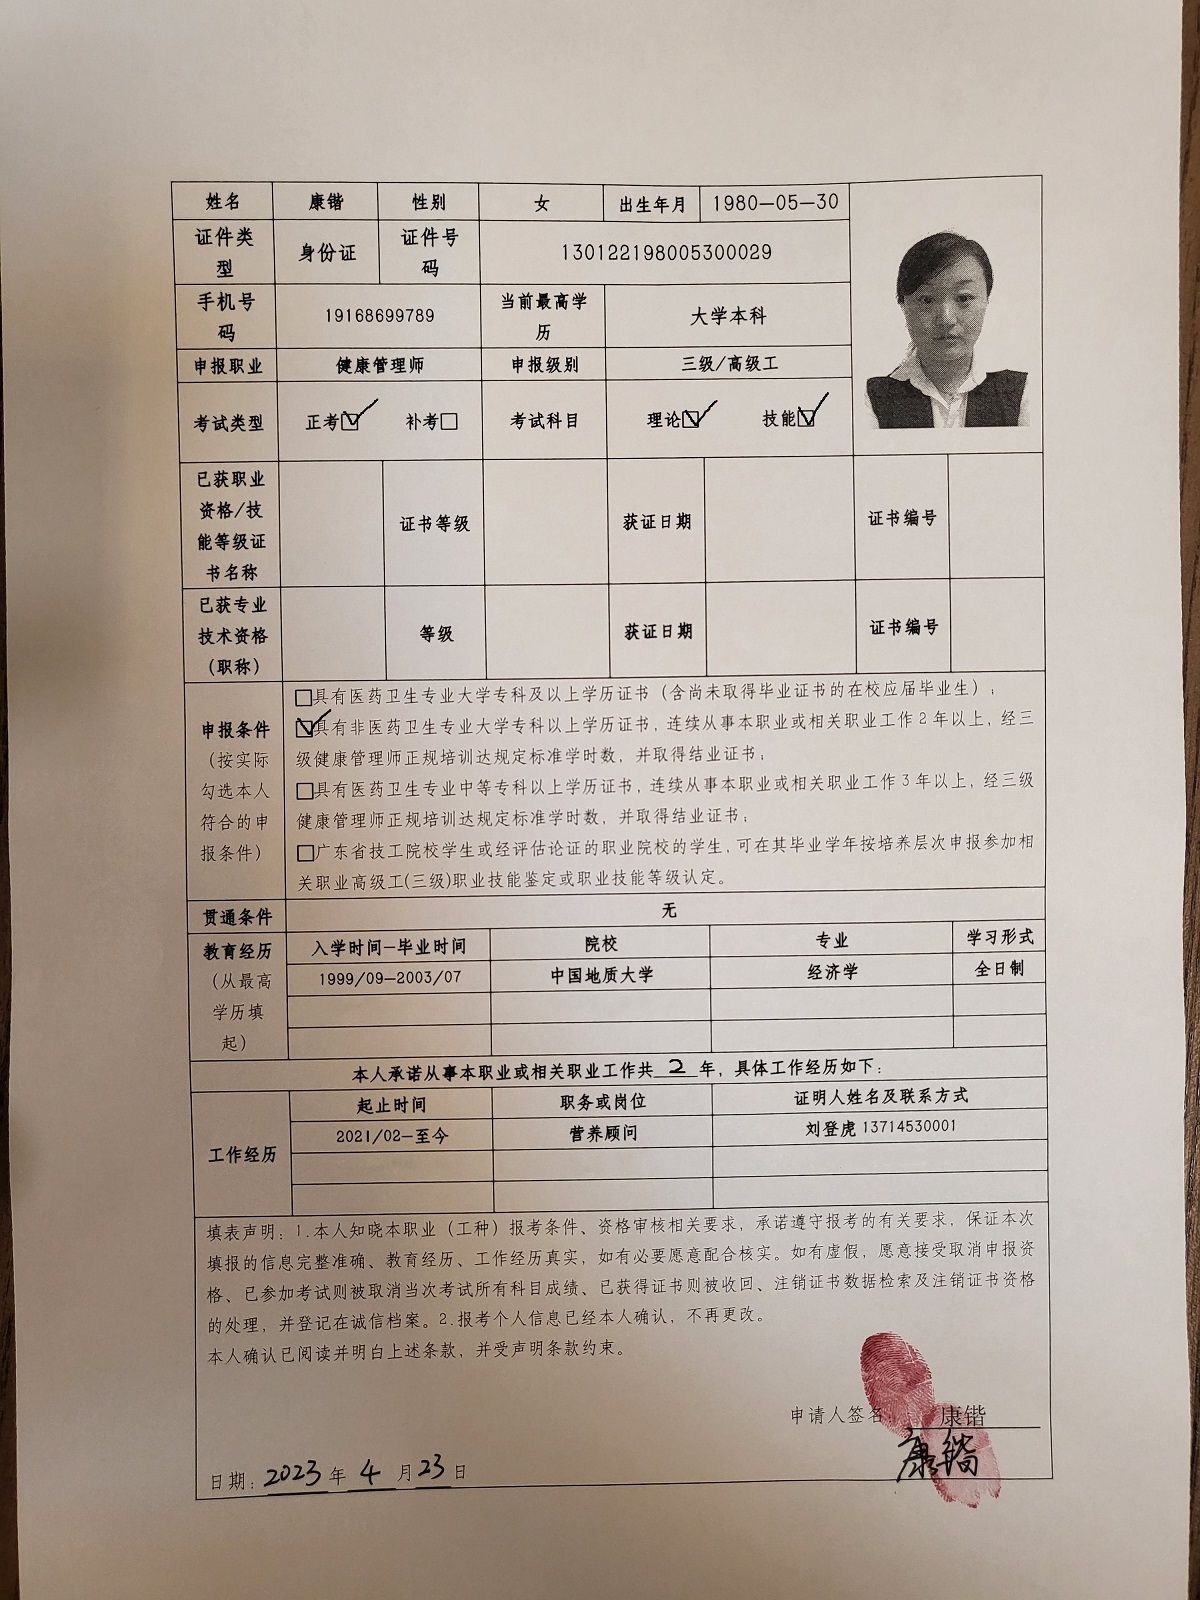 姓名 康锴 性别 女 出生年月 1980—05—30
证件类型 身份证 证件号码 130122198005300029
手机号码 19168699789 当前最高学历 大学本科
申报职业 健康管理师 申报级别 三级/高级工
考试类型 正考☑ 补考□ 考试科目 理论☑ 技能☑
已获职业资格/技能等级证书名称 证书等级 获证日期 证书编号
已获专业技术资格（职称） 等级 获证日期 证书编号
申报条件（按实际勾选本人符合的申报条件）
□具有医药卫生专业大学专科及以上学历证书（含尚未取得毕业证书的在校应届毕业生）；
☑具有非医药卫生专业大学专科以上学历证书，连续从事本职业或相关职业工作2年以上，经三
级健康管理师正规培训达规定标准学时数，并取得结业证书；
□具有医药卫生专业中等专科以上学历证书，连续从事本职业或相关职业工作3年以上，经三级
健康管理师正规培训达规定标准学时数，并取得结业证书；
□广东省技工院校学生或经评估论证的职业院校的学生，可在其毕业学年按培养层次申报参加相
关职业高级工(三级)职业技能鉴定或职业技能等级认定。
贯通条件 无
教育经历（从最高学历填起） 入学时间—毕业时间 院校 专业 学习形式
1999/09—2003/07 中国地质大学 经济学 全日制
本人承诺从事本职业或相关职业工作共 2 年，具体工作经历如下：
工作经历 起止时间 职务或岗位 证明人姓名及联系方式
2021/02—至今 营养顾问 刘登虎 13714530001
填表声明：1.本人知晓本职业（工种）报考条件、资格审核相关要求，承诺遵守报考的有关要求，保证本次
填报的信息完整准确、教育经历、工作经历真实，如有必要愿意配合核实。如有虚假，愿意接受取消申报资
格、已参加考试则被取消当次考试所有科目成绩、已获得证书则被收回、注销证书数据检索及注销证书资格
的处理，并登记在诚信档案。2.报考个人信息已经本人确认，不再更改。
本人确认已阅读并明白上述条款，并受声明条款约束。
申请人签名： 康锴
康锴
日期：2023 年 4 月 23 日